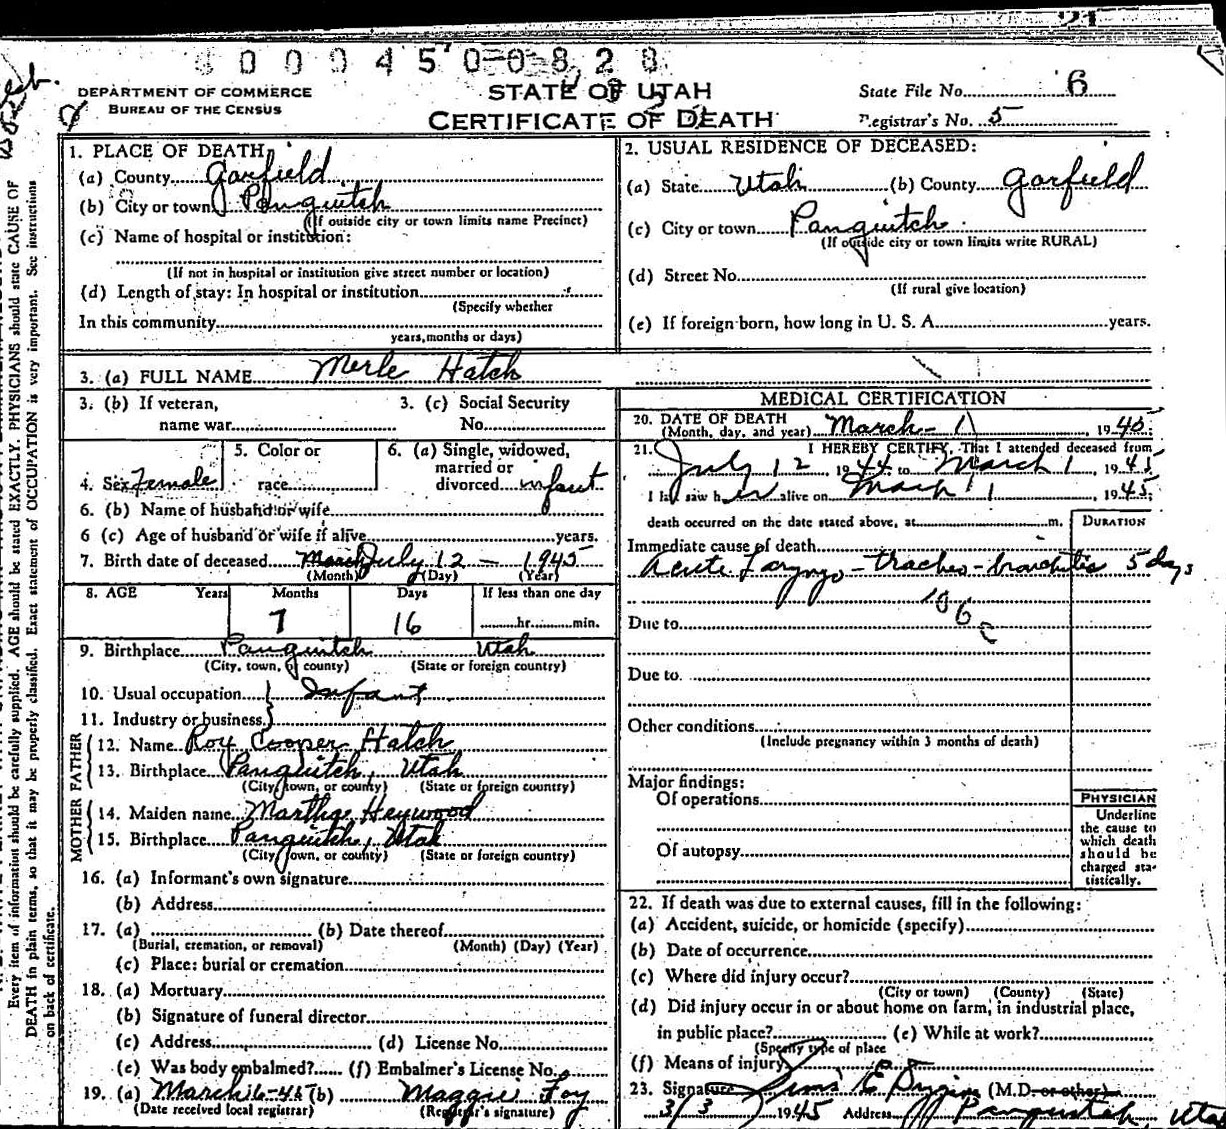 21
000045000828
DEPARTMENT OF COMMERCE
BUREAU OF THE CENSUS
STATE OF UTAH
CERTIFICATE OF DEATH
State File No. 6
Registrar's No. 5
Every item of information should be carefully supplied. AGE should be stated EXACTLY. PHYSICIANS should state CAUSE OF
DEATH in plain terms, so that it may be properly classified. Exact statement of OCCUPATION is very important. See instructions
on back of certificate.
1. PLACE OF DEATH
(a) County Garfield
(b) City or town Panguitch
(If outside city or town limits name Precinct)
(c) Name of hospital or institution:
(If not in hospital or institution give street number or location)
(d) Length of stay: In hospital or institution
(Specify whether
In this community
years, months or days)
2. USUAL RESIDENCE OF DECEASED:
(a) State Utah (b) County Garfield
(c) City or town Panguitch
(If outside city or town limits write RURAL)
(d) Street No.
(If rural give location)
(e) If foreign born, how long in U. S. A. years.
3. (a) FULL NAME Merle Hatch
3. (b) If veteran,
name war
3. (c) Social Security
No.
4. Sex Female
5. Color or
race
6. (a) Single, widowed,
married or
divorced infant
6. (b) Name of husband or wife
6 (c) Age of husband or wife if alive years.
7. Birth date of deceased March July 12 — 1945
(Month) (Day) (Year)
8. AGE Years Months Days If less than one day
7 16 hr. min.
9. Birthplace Panguitch Utah
(City, town, or county) (State or foreign country)
10. Usual occupation Infant
11. Industry or business
FATHER
12. Name Roy Cooper Hatch
13. Birthplace Panguitch, Utah
(City, town, or county) (State or foreign country)
MOTHER
14. Maiden name Martha Heywood
15. Birthplace Panguitch, Utah
(City, town, or county) (State or foreign country)
16. (a) Informant's own signature
(b) Address
17. (a) (b) Date thereof
(Burial, cremation, or removal) (Month) (Day) (Year)
(c) Place: burial or cremation
18. (a) Mortuary
(b) Signature of funeral director
(c) Address (d) License No.
(e) Was body embalmed? (f) Embalmer's License No.
19. (a) March 6-45 (b) Maggie Foy
(Date received local registrar) (Registrar's signature)
MEDICAL CERTIFICATION
20. DATE OF DEATH
(Month, day, and year) March - 1, 1945
21. I HEREBY CERTIFY, That I attended deceased from
July 12 1944 to March 1, 1945
I last saw her alive on March 1, 1945;
death occurred on the date stated above, at m.
DURATION
Immediate cause of death
Acute Laryngo-tracheo-bronchitis 5 days
106c
Due to
Due to.
Other conditions
(Include pregnancy within 3 months of death)
Major findings:
Of operations
Of autopsy
PHYSICIAN
Underline
the cause to
which death
should be
charged sta-
tistically.
22. If death was due to external causes, fill in the following:
(a) Accident, suicide, or homicide (specify)
(b) Date of occurrence
(c) Where did injury occur?
(City or town) (County) (State)
(d) Did injury occur in or about home on farm, in industrial place,
in public place? (e) While at work?
(Specify type of place
(f) Means of injury
23. Signature Sims E (M.D. or other)
3/3 1945 Address Panguitch, Utah